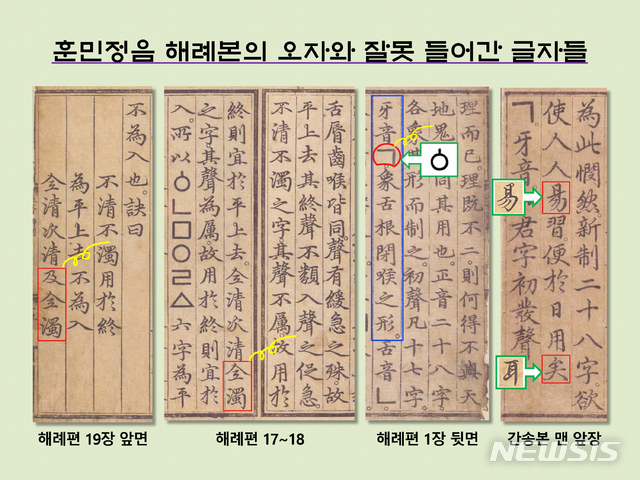 훈민정음 해례본의 오자와 잘못 들어간 글자들
不為入也。訣曰
不清不濁用於終
為平上去不為入
全清次清及全濁
舌脣齒喉皆同。聲有緩急之殊。故
平上去其終聲不類入聲之促急。
不清不濁之字。其聲不厲。故用於
終則宜於平上去。全清次清全濁
之字。其聲為厲。故用於終則宜於
入。所以ㆁㄴㅁㅇㄹㅿ六字為平
理而已。理既不二。則何得不與天
地鬼 同其用也。正音二十八字。
各象其形而制之。初聲凡十七字。
牙音ㄱ象舌根閉喉之形。舌音ㄴ
ㆁ
為此憫然新制二十八字欲
使人人易習。便於日用矣
ㄱ。牙音。 君字初發聲
易
耳
해례편 19장 앞면
해례편 17~18
해례편 1장 뒷면
간송본 맨 앞장
NEWSIS